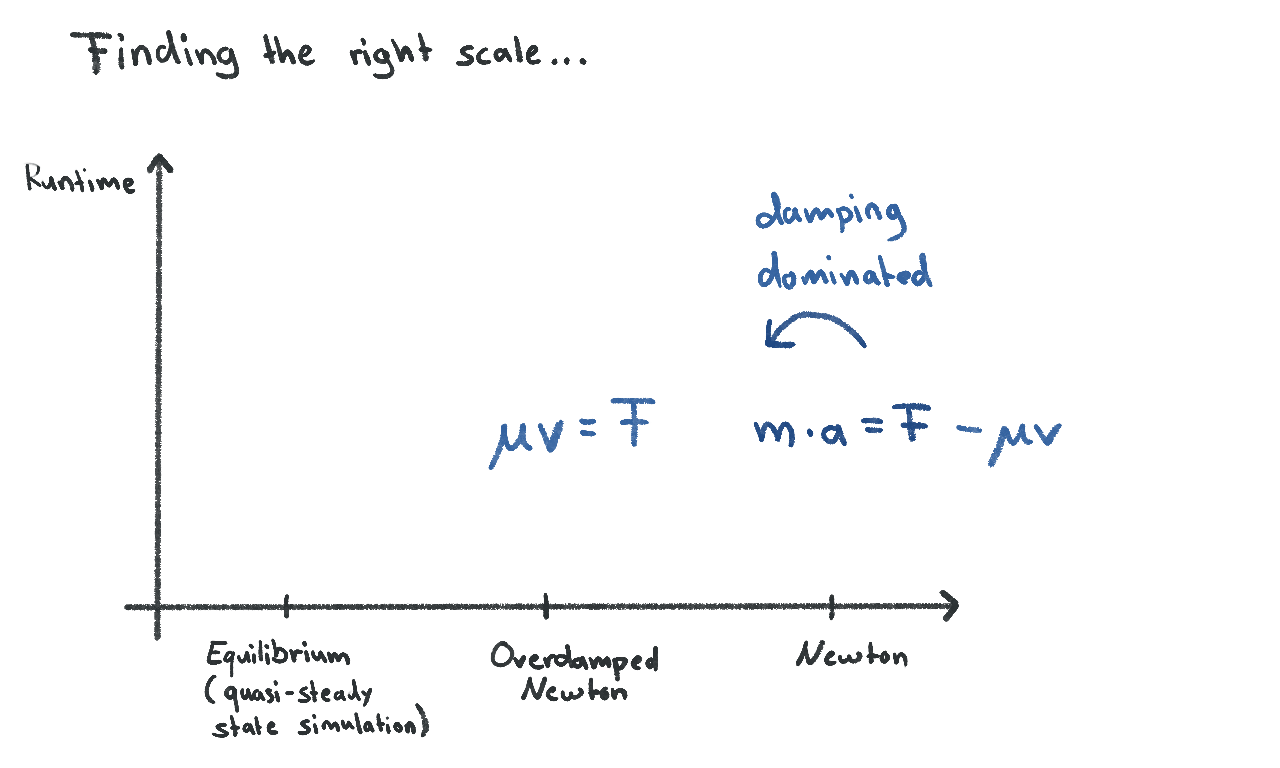 Finding the right scale...
Runtime
damping
dominated
μv = F
m·a = F - μv
Equilibrium
(quasi-steady
state simulation)
Overdamped
Newton
Newton